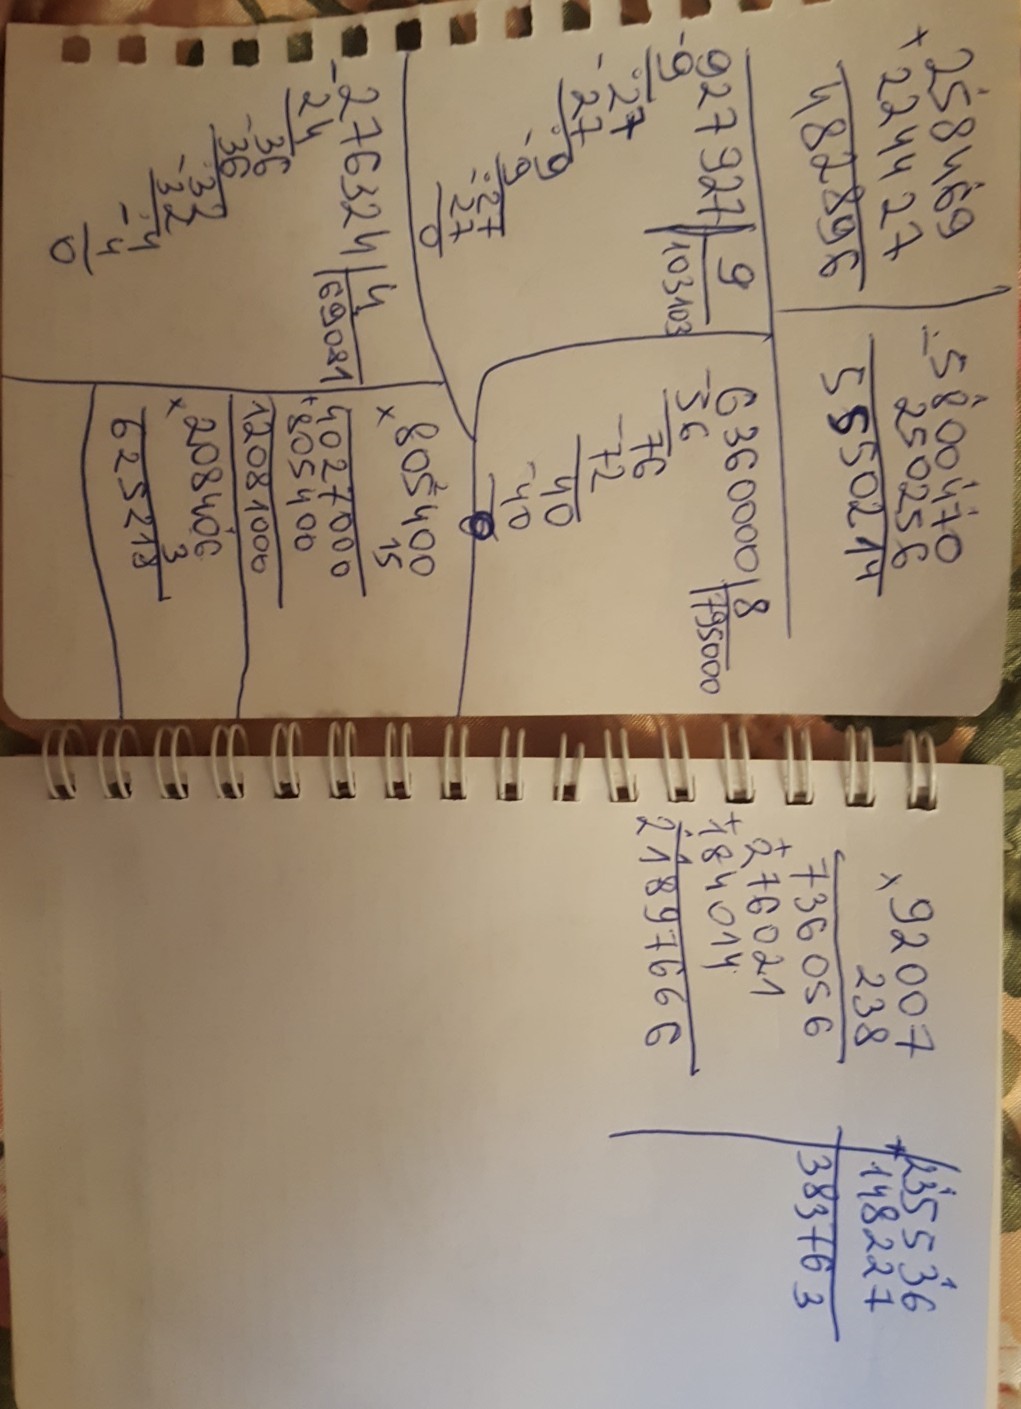 258469
+ 224427
482896
- 5800470
250256
5550214
927927 | 9
- 9 103103
27
- 27
9
- 9
27
- 27
0
6360000 | 8
- 56 795000
76
- 72
40
- 40
0
- 276324 | 4
24 69081
36
- 36
32
- 32
4
- 4
0
805400
x 15
4027000
+ 805400
12081000
208406
x 3
625218
92007
x 238
736056
+ 276021
+ 184014
21897666
235536
+ 148227
383763